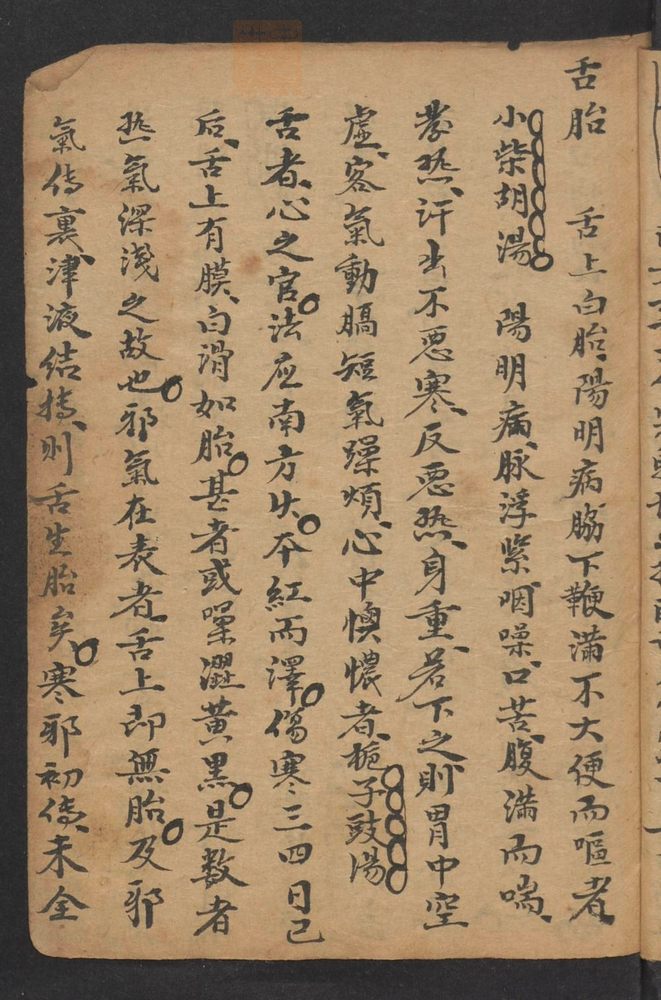 舌胎 舌上白胎、陽明病脇下鞕滿不大便而嘔者
小柴胡湯 陽明病、脉浮緊、咽噪、口苦、腹滿而喘、
發热、汗出不恶寒、反恶热、身重、若下之、則胃中空
虛、客氣動膈、短氣躁煩、心中懊憹者、梔子豉湯
舌者、心之官。法应南方火。本紅而澤。傷寒三四日已
后、舌上有膜、白滑如胎。甚者或噪澀黃黑。是数者
热氣深淺之故也。邪氣在表者、舌上即無胎。及邪
氣传裏、津液结搏、則舌生胎矣。寒邪初传、未全